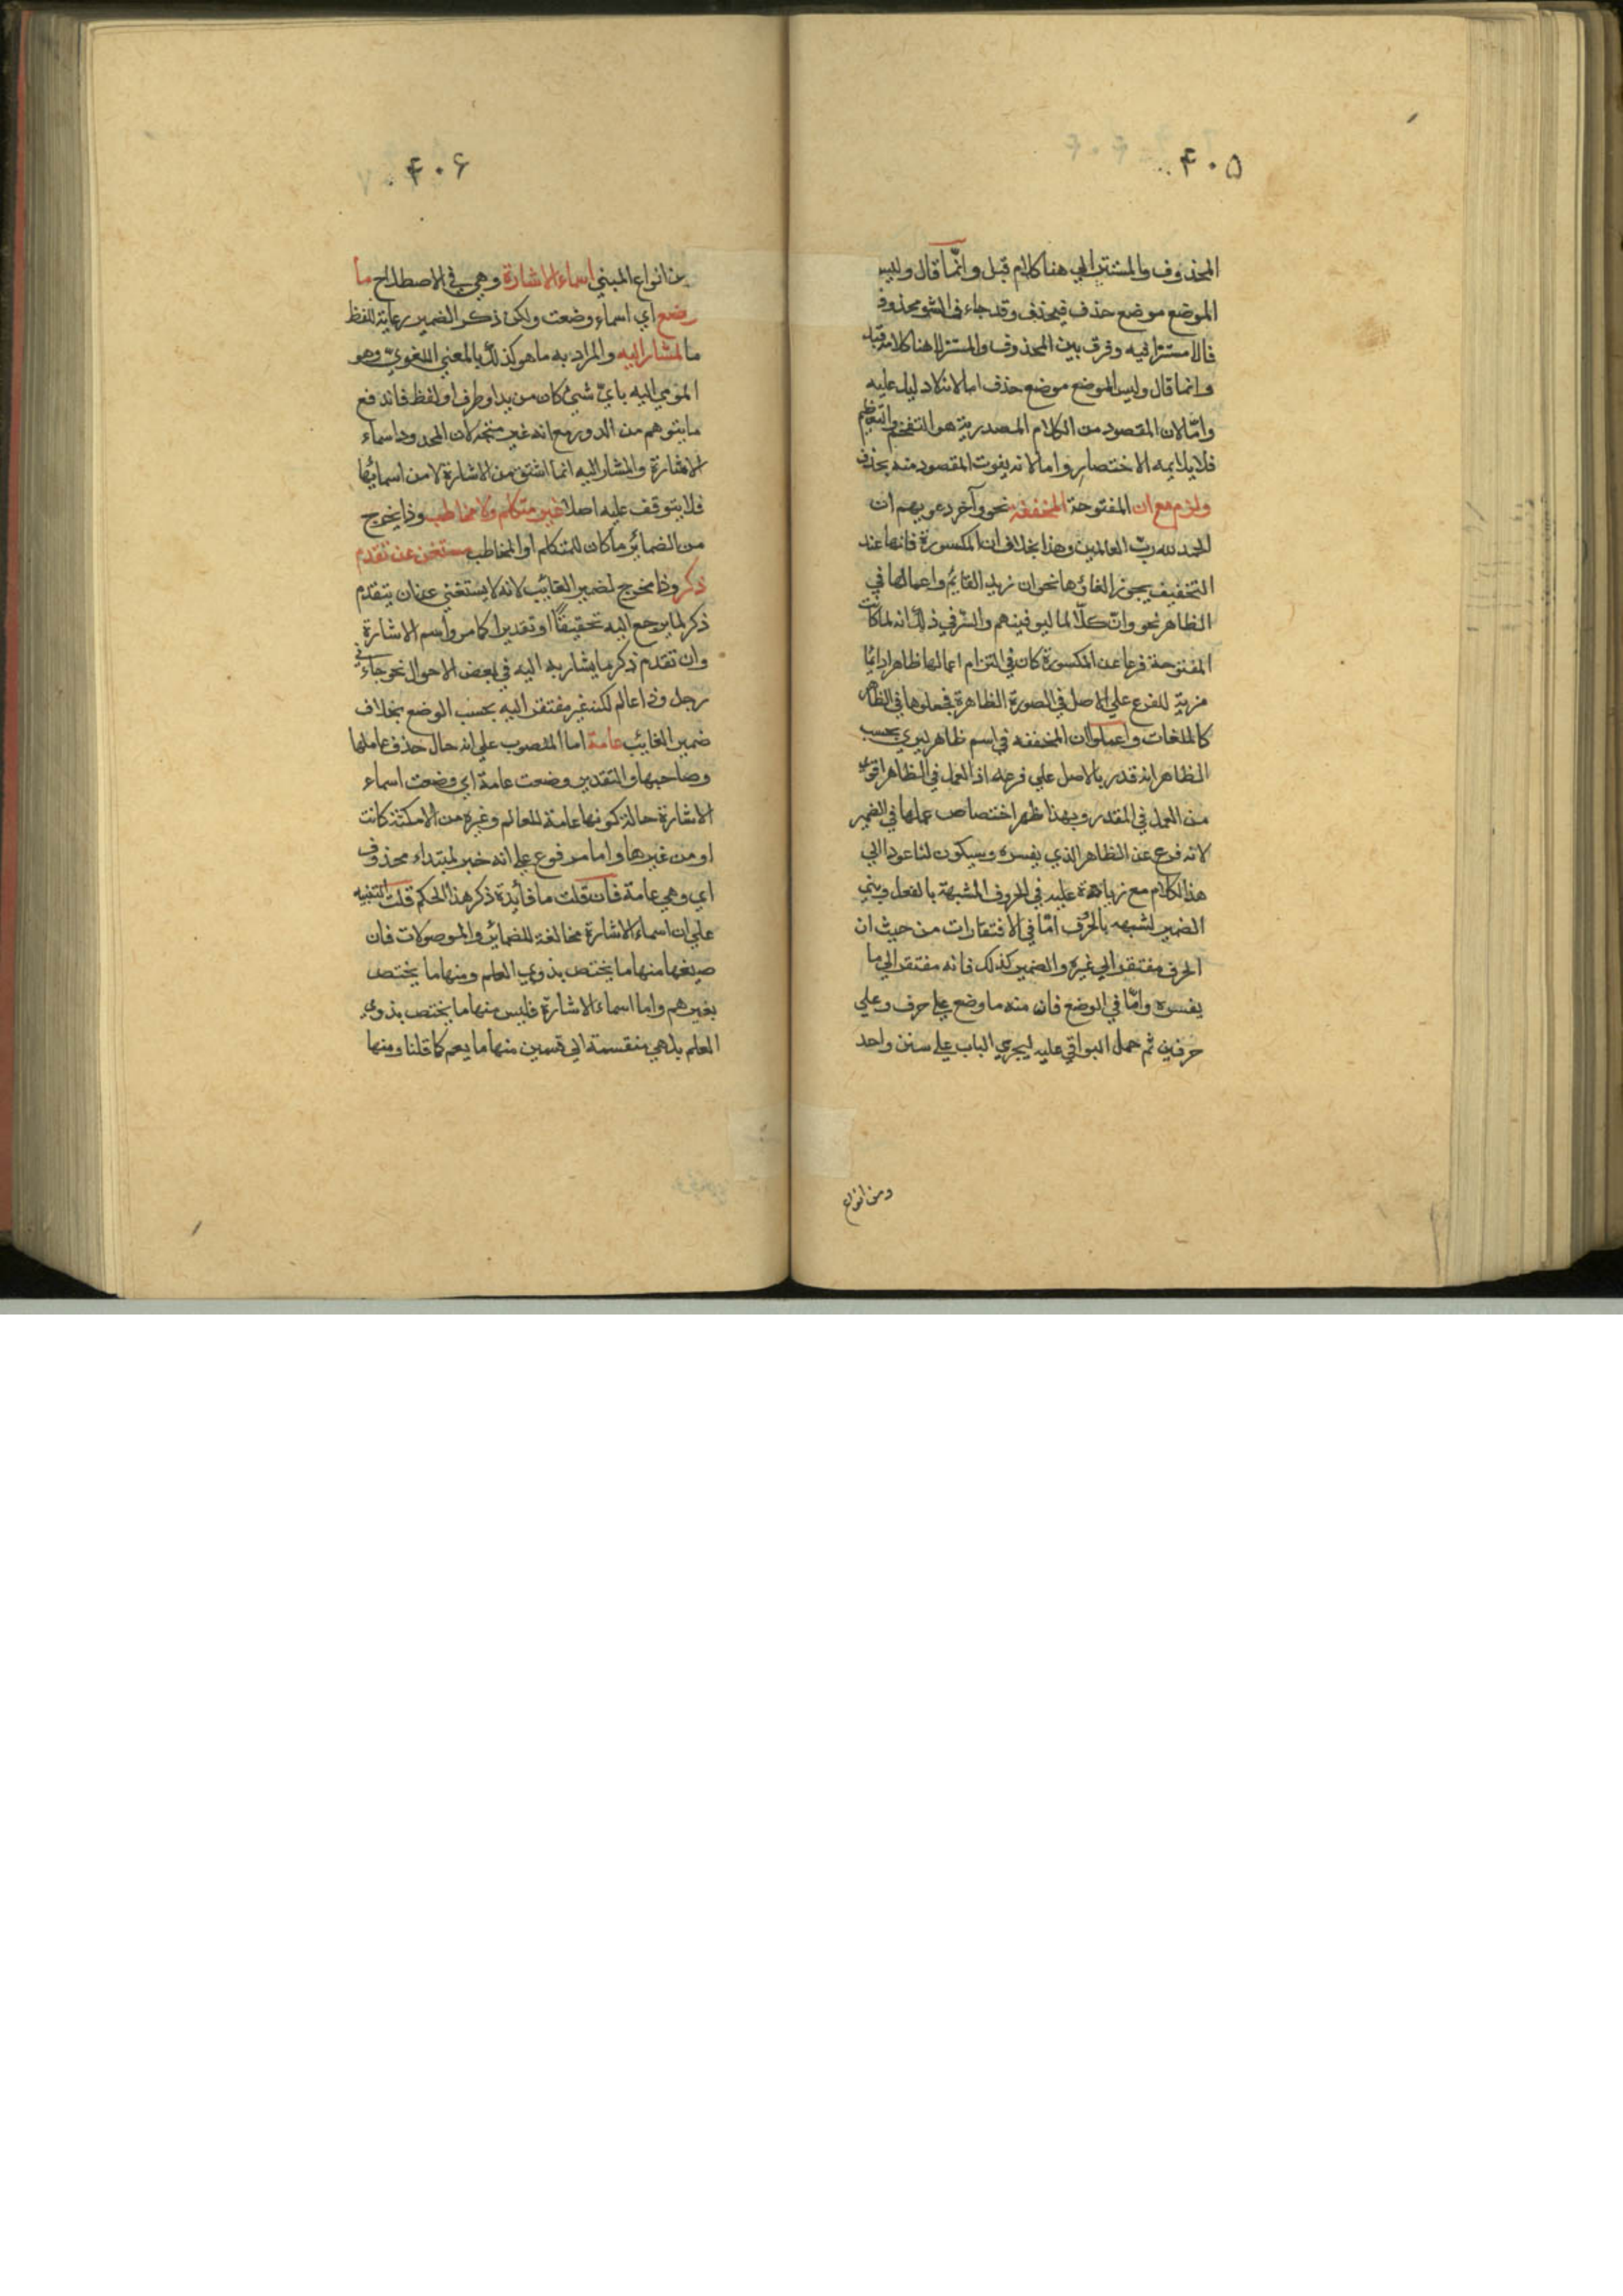 ۴۰۵
المحذوف والمستتر الي هنا كلام قيل وانما قال وليس
الموضع موضع حذف فيحذف وقد جاء في الشو محذوف
فالامستترافيه وفرق بين المحذوف والمستتر الا هنا كلامه قيل
وانما قال وليس الموضع موضع حذف اما لانه لا دليل عليه
وامّا لان المقصود من الكلام المصدر به هو التفخيم والتعظيم
فلا يلايمه الاختصار واما لانه يفوت المقصود منه بحذف
ولزم مع ان المفتوحة المخففة نحو وآخر دعويهم ان
الحمد لله ربّ العالمين وهذا بخلاف ان المكسورة فانها عند
التخفيف يجوز الغاؤها نحو ان زيد القايم واعمالها في
الظاهر نحو وانّ كلّا لما ليوفينهم والسّر في ذلك انه لما كانت
المفتوحة فرعا عن المكسورة كان في التزام اعمالها ظاهرا دايما
مزية للفرع علي الاصل في الصورة الظاهرة فجعلوها في الظاهر
كالملغات واعملوا ان المخففه في اسم ظاهر ليري بحسب
الظاهر انه قدر بالاصل علي فرعه اذ العمل في الظاهر اقوي
من العمل في المقدر وبهذا ظهر اختصاص عملها في الضمير
لانه فرع عن الظاهر الذي يفسره وسيكون لنا عود الي
هذا الكلام مع زيادة عليه في الحروف المشبهة بالفعل وبني
الضمير لشبهه بالحرف امّا في الافتقارات من حيث ان
الحرف مفتقر الي غيره والضمير كذلك فانه مفتقر الي ما
يفسره وامّا في الوضع فان منه ما وضع علي حرف وعلي
حرفين ثم حمل البواقي عليه ليجري الباب علي سنن واحد
ومن انواع
۴۰۶
من انواع المبني اسماء الاشارة وهي في الاصطلاح ما
وضع اي اسماء وضعت ولكن ذكر الضمير رعاية للفظ
ما لمشار اليه والمراد به ما هو كذلك بالمعني اللغويّ وهو
المومي اليه بايّ شئ كان من يد او طرف او لفظ فاندفع
ما يتوهم من الدور مع انه غير متجه لان المحدود اسماء
الاشارة والمشار اليه انما اشتق من الاشارة لا من اسمائها
فلا يتوقف عليه اصلا غير متكلم ولا مخاطب وذا يخرج
من الضمائر ما كان للمتكلم او المخاطب مستغن عن تقدم
ذكر وذا مخرج لضمير الغايب لانه لا يستغني عن ان يتقدم
ذكر لما يرجع اليه تحقيقًا او تقديرا كما مر واسم الاشارة
وان تقدم ذكر ما يشار به اليه في بعض الاحوال نحو جاءني
رجل وذا عالم لكنه غير مفتقر اليه بحسب الوضع بخلاف
ضمير الغائب عامة اما المنصوب علي انه حال حذف عاملها
وصاحبها والتقدير وضعت عامة اي وضعت اسماء
الاشارة حالة كونها عامة للعالم وغيره من الامكنة كانت
او من غيرها واما مرفوع علي انه خبر لمبتداء محذوف
اي وهي عامة فان قلت ما فائدة ذكر هذا الحكم قلت التنبيه
علي ان اسماء الاشارة مخالفة للضمائر والموصولات فان
صيغها منها ما يختص بذوي العلم ومنها ما يختص
بغيرهم واما اسماء الاشارة فليس منها ما يختص بذوي
العلم بل هي منقسمة الي قسمين منها ما يعم كما قلنا ومنها